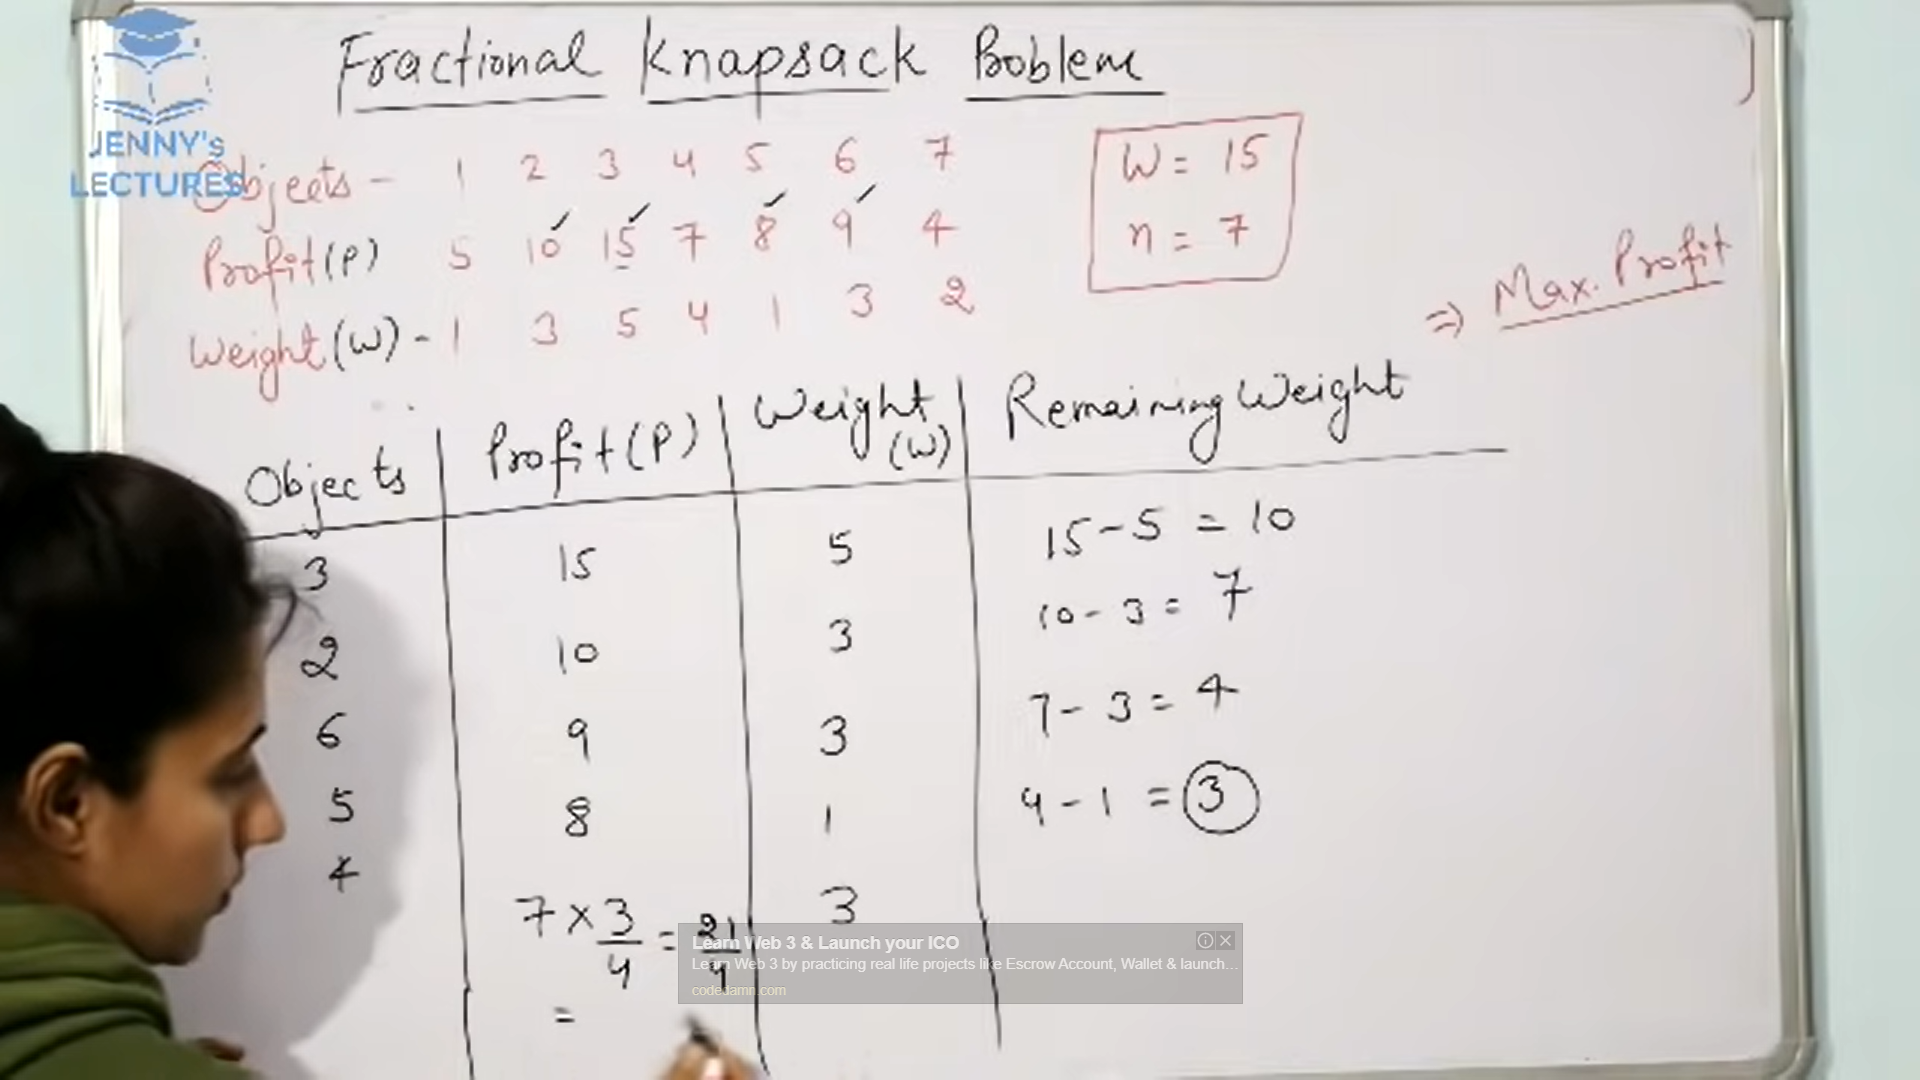 Fractional Knapsack Problem
JENNY's
LECTURES
Objects - 1 2 3 4 5 6 7
Profit (P) 5 10 15 7 8 9 4
Weight (W) - 1 3 5 4 1 3 2
W = 15
n = 7
⇒ Max. Profit
Objects Profit (P) Weight (W) Remaining Weight
3 15 5 15 - 5 = 10
2 10 3 10 - 3 = 7
6 9 3 7 - 3 = 4
5 8 1 4 - 1 = 3
4 7 × 3/4 = 21/4 3
=
Learn Web 3 & Launch your ICO
Learn Web 3 by practicing real life projects like Escrow Account, Wallet & launch...
codedamn.com